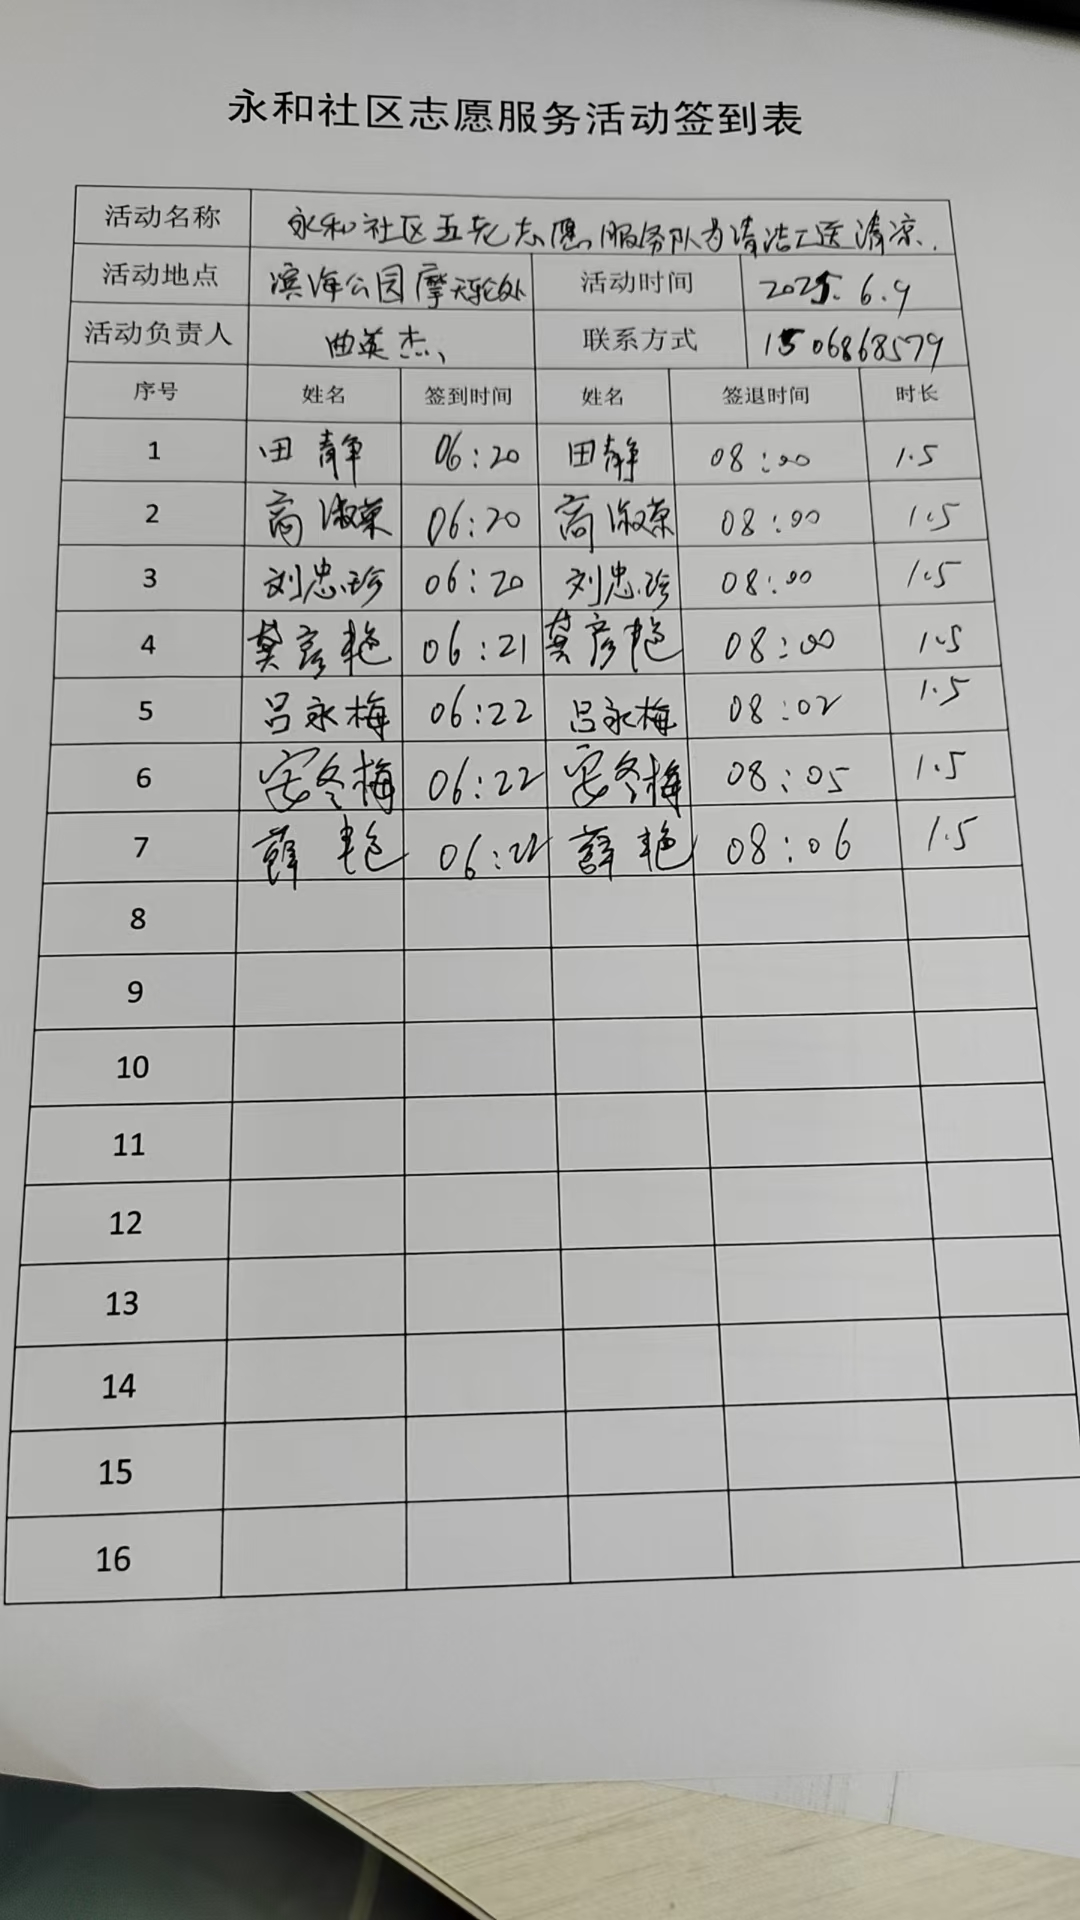 永和社区志愿服务活动签到表
活动名称 永和社区五老志愿服务队为清洁工送清凉.
活动地点 滨海公园摩天轮处 活动时间 2025.6.9
活动负责人 曲英杰 联系方式 1506868579
序号 姓名 签到时间 姓名 签退时间 时长
1 田静 06:20 田静 08:00 1.5
2 高淑荣 06:20 高淑荣 08:00 1.5
3 刘忠珍 06:20 刘忠珍 08:00 1.5
4 綦彦艳 06:21 綦彦艳 08:00 1.5
5 吕永梅 06:22 吕永梅 08:02 1.5
6 安冬梅 06:22 安冬梅 08:05 1.5
7 薛艳 06:22 薛艳 08:06 1.5
8
9
10
11
12
13
14
15
16